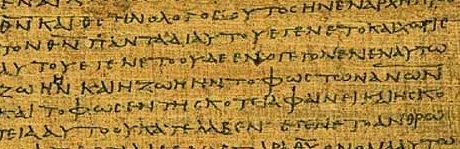 ΘΝΚΑΙΘϹΗΝΟΛΟΓΟϹΟΥΤΟϹΗΝΕΝΑΡΧΗ
ΤΟΝΘΝΠΑΝΤΑΔΙΑΥΤΟΥΕΓΕΝΕΤΟΚΑΙΧΩΡΙϹ
ΑΥΤΟΥΕΓΕΝΕΤΟΟΥΔΕΕΝΟΓΕΓΟΝΕΝΕΝΑΥΤΩ
ΖΩΗΗΝΚΑΙΗΖΩΗΗΝΤΟΦΩϹΤΩΝΑΝΩΝ
ΚΑΙΤΟΦΩϹΕΝΤΗϹΚΟΤΕΙΑΦΑΙΝΕΙΚΑΙΗϹΚΟ
ΤΕΙΑΑΥΤΟΟΥΚΑΤΕΛΑΒΕΝΕΓΕΝΕΤΟΑΝΘΡΩ